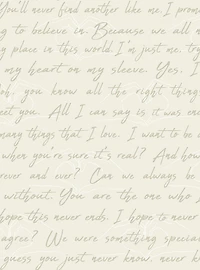 You'll never find another like me. I prom
g to believe in. Because we all n
y place in this world. I'm just me, try
my heart on my sleeve. Yes, I
ob, you know all the right things
eet you. All I can say is it was en
many things that I love. I want to be
when you're sure it's real? And how
rever and ever? Can we always be
without. You are the one who I
hope this never ends. I hope to never
agree? We were something special
guess you just never know, never k